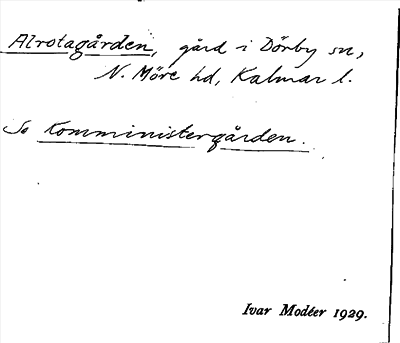 Alrotagården, gård i Dörby sn,
N. Möre hd, Kalmar l.
Se Komministergården.
Ivar Modéer 1929.